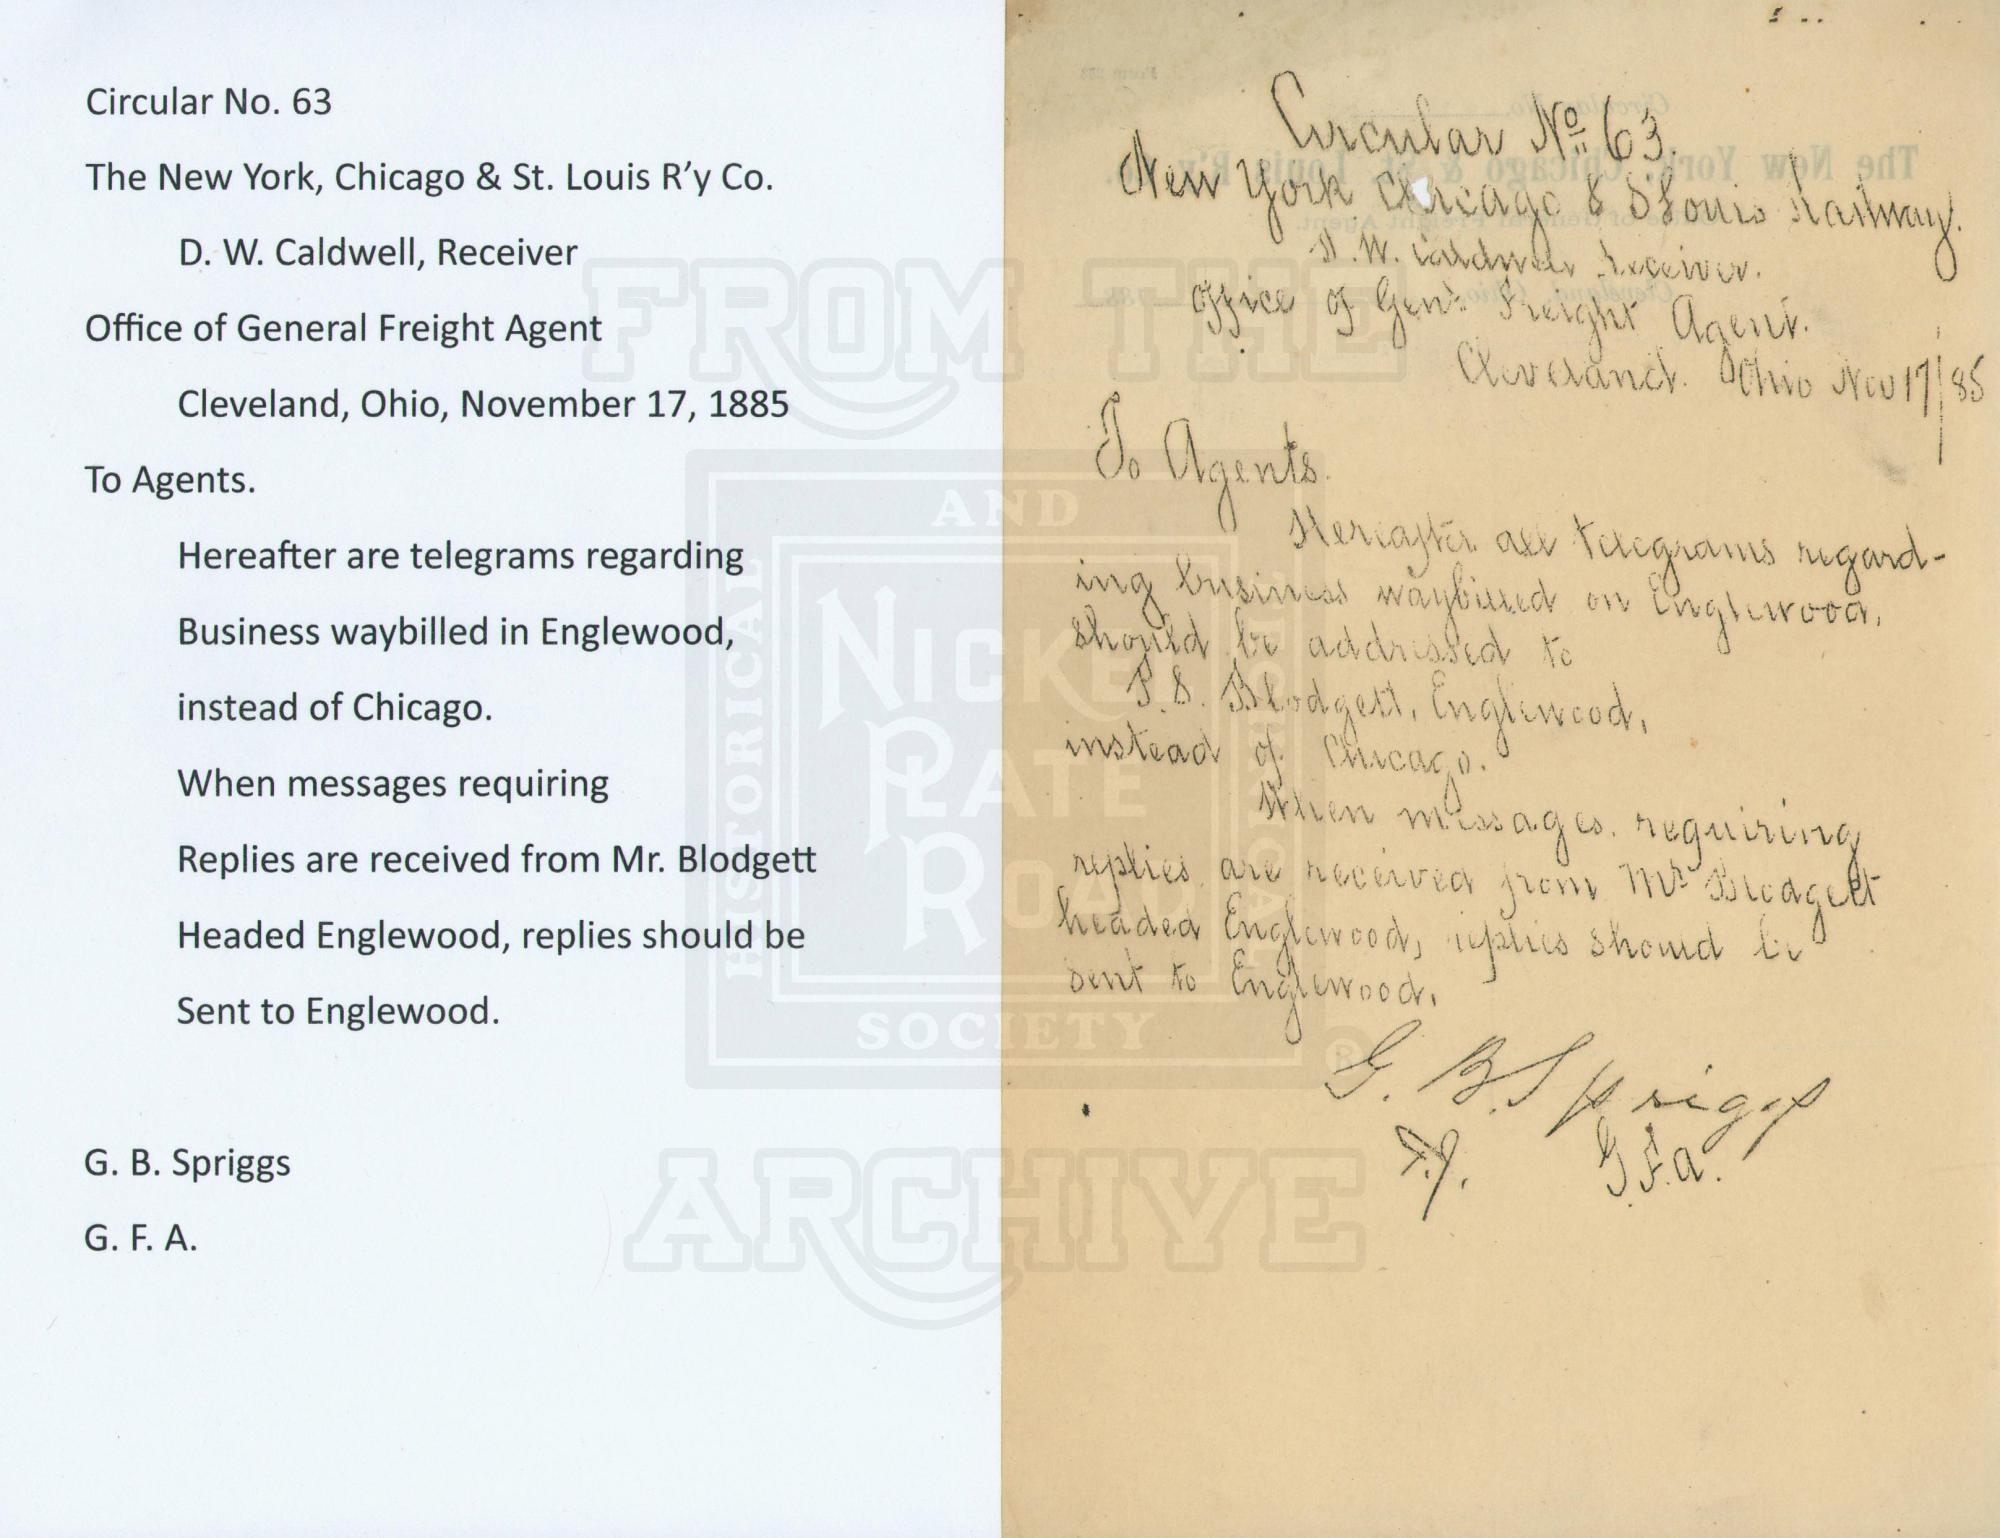 Circular No. 63
The New York, Chicago & St. Louis R'y Co.
D. W. Caldwell, Receiver
Office of General Freight Agent
Cleveland, Ohio, November 17, 1885
To Agents.
Hereafter are telegrams regarding
Business waybilled in Englewood,
instead of Chicago.
When messages requiring
Replies are received from Mr. Blodgett
Headed Englewood, replies should be
Sent to Englewood.
G. B. Spriggs
G. F. A.
Circular No 63.
New York Chicago & St Louis Railway.
D. W. Caldwell Receiver.
Office of Genl Freight Agent.
Cleveland. Ohio Nov 17/85
To Agents.
Hereafter all telegrams regard-
ing business waybilled on Englewood,
should be addressed to
P. S. Blodgett, Englewood,
instead of Chicago.
When messages requiring
replies are received from Mr Blodgett
headed Englewood, replies should be
sent to Englewood.
G. B. Spriggs
G.F.A.
FROM THE
NICKEL PLATE ROAD
HISTORICAL
AND
TECHNICAL
SOCIETY
®
ARCHIVE